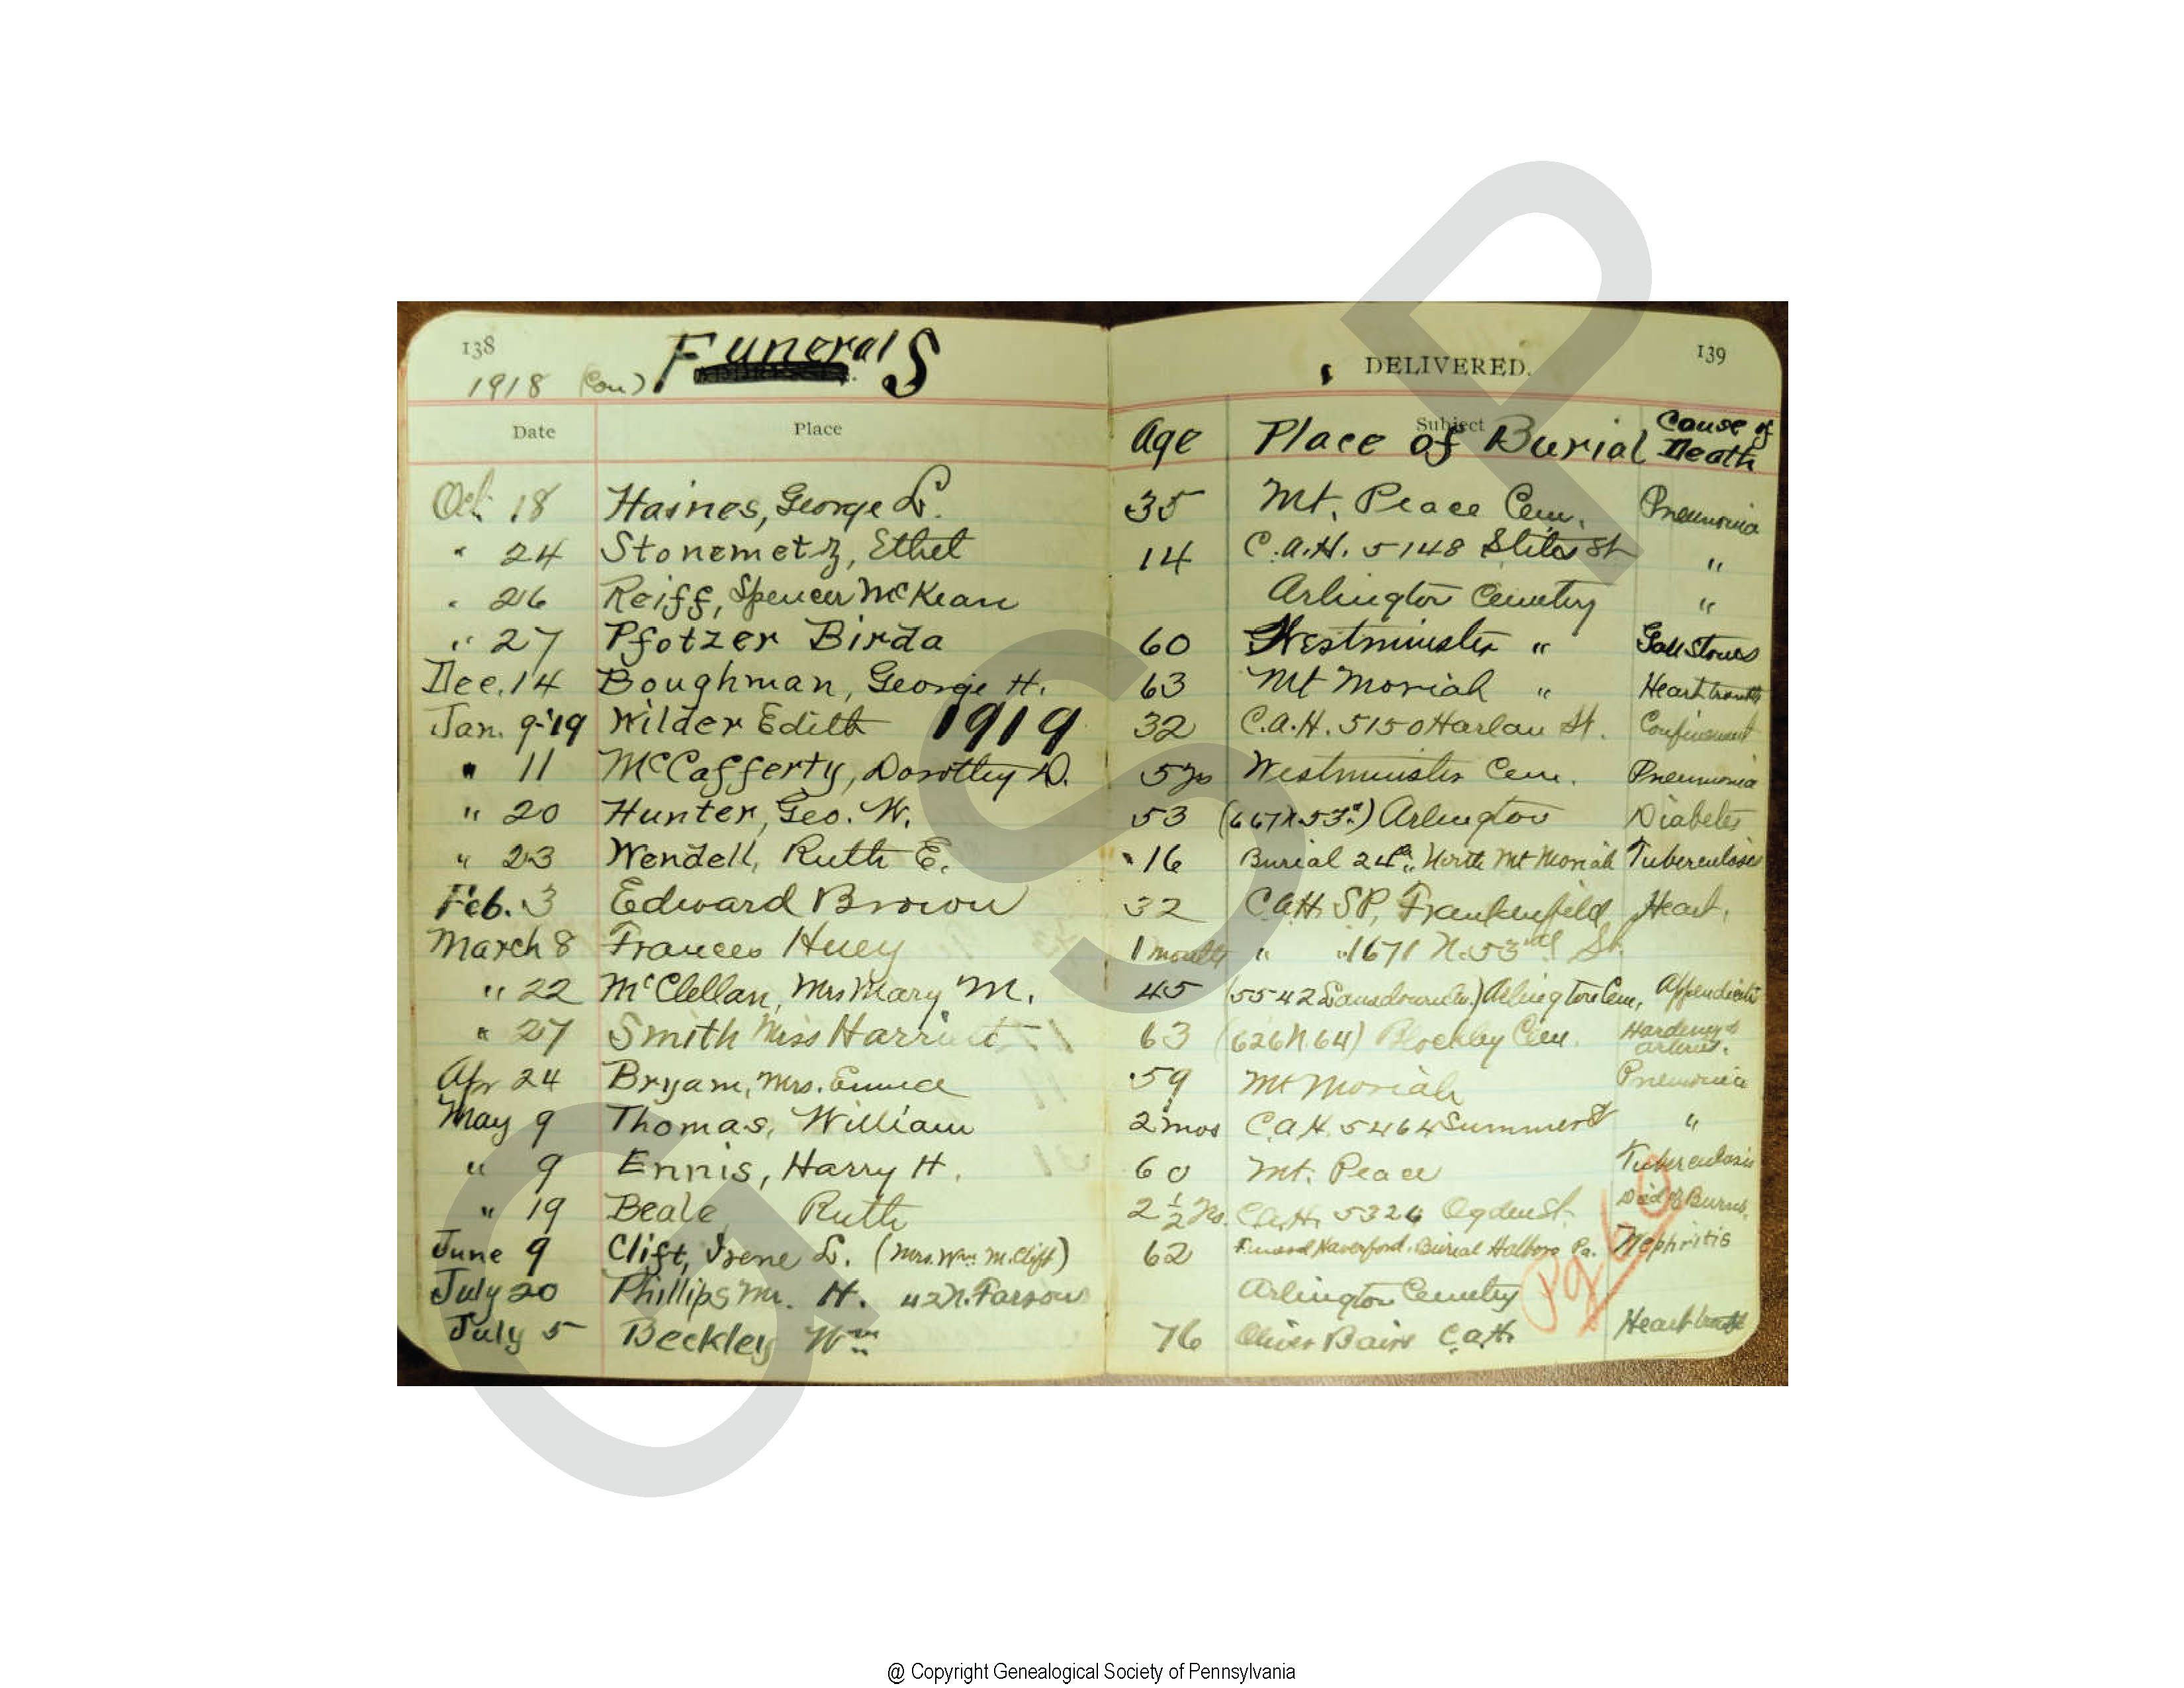 138
Funerals
1918 (Con)
Date Place
DELIVERED.
139
Age Subject Place of Burial Cause of Death
Oct. 18 Haines, George L. 35 Mt. Peace Cem. Pneumonia
" 24 Stonemetz, Ethel 14 C.A.H. 5148 Stiles St. "
" 26 Reiff, Spencer McKean Arlington Cemetery "
" 27 Pfotzer Birda 60 Westminster " Gall Stones
Dec. 14 Boughman, George H. 63 Mt Moriah " Heart trouble
Jan. 9-'19 Wilder Edith 1919 32 C.A.H. 5150 Harlan St. Confinement
" 11 McCafferty, Dorothy D. 5 yrs Westminster Cem. Pneumonia
" 20 Hunter, Geo. W. 53 (667 N 53rd) Arlington Diabetes
" 23 Wendell, Ruth E. 16 Burial 24th North Mt Moriah Tuberculosis
Feb. 3 Edward Brown 32 C.A.H. SP, Frankenfield Heart.
March 8 Frances Huey 1 month " " 1671 N. 53rd St.
" 22 McClellan, Mrs Mary M. 45 (5542 Lansdowne Av.) Arlington Cem. Appendicitis
" 27 Smith Miss Harriet 63 (626 N. 64) Blockley Cem. Hardening of arteries.
Apr 24 Bryam, Mrs. Emma 59 Mt Moriah Pneumonia
May 9 Thomas, William 2 mos C.A.H. 5464 Summer St "
" 9 Ennis, Harry H. 60 Mt. Peace Tuberculosis
" 19 Beale Ruth 2 1/2 yrs. C.A.H. 5326 Ogden St. Died of Burns.
June 9 Clift, Irene L. (Mrs. Wm. M. Clift) 62 Funeral Haverford. Burial Hatboro Pa. Nephritis
July 20 Phillips Mr. H. 42 N. Farson Arlington Cemetery
July 5 Beckley Wm 76 Oliver Bair C.A.H. Heart trouble
Pg 60
GSP
@ Copyright Genealogical Society of Pennsylvania